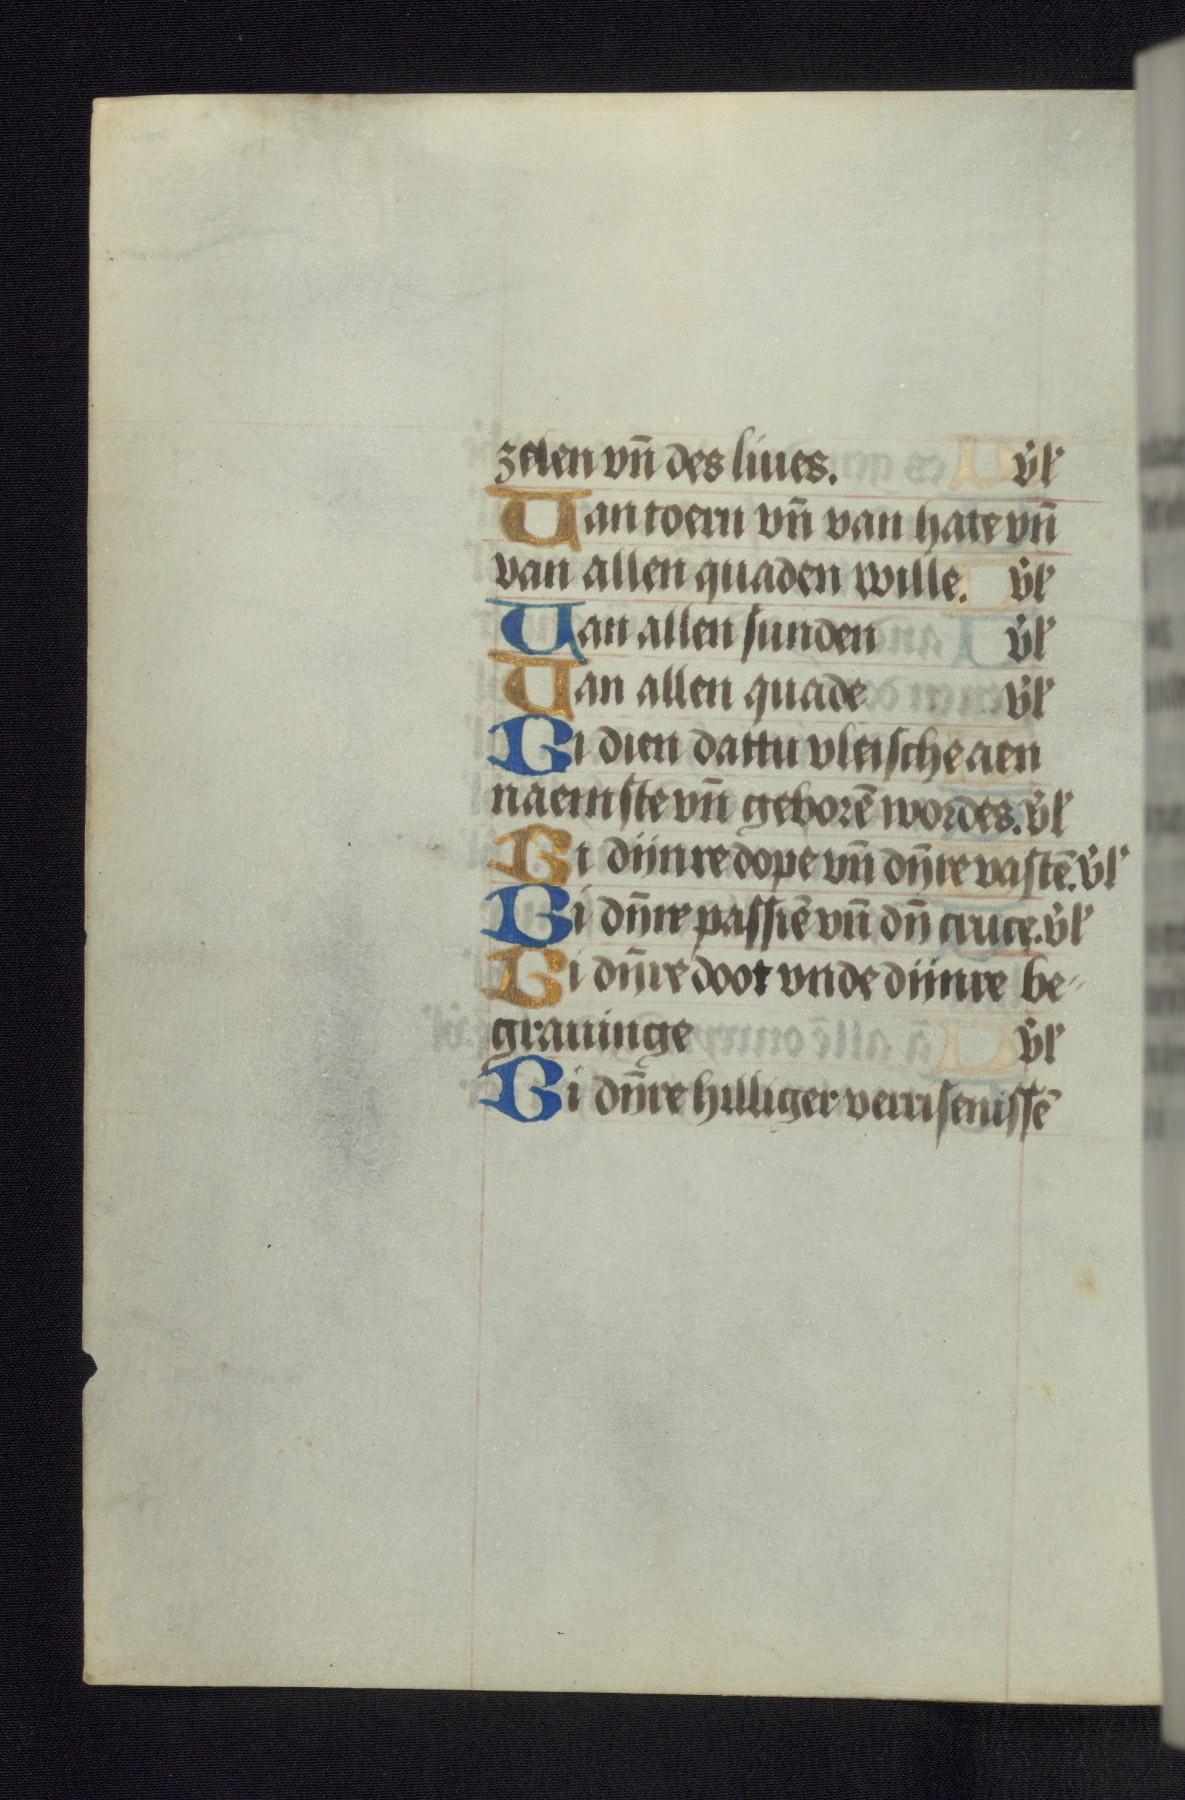 zelen vn̄ des liues. v̊l'
Uan toern vn̄ van hate vn̄
van allen quaden wille. v̊l'
Uan allen sunden v̊l'
Uan allen quade v̊l'
Bi dien dattu vleische aen
naemste vn̄ geborē wordes. v̊l'
Bi dijnre dope vn̄ dn̄re vastē. v̊l'
Bi dn̄re passiē vn̄ dn̄ cruce. v̊l'
Bi dn̄re doot vnde dijnre be-
grauinge v̊l'
Bi dn̄re hilliger verrisenissē